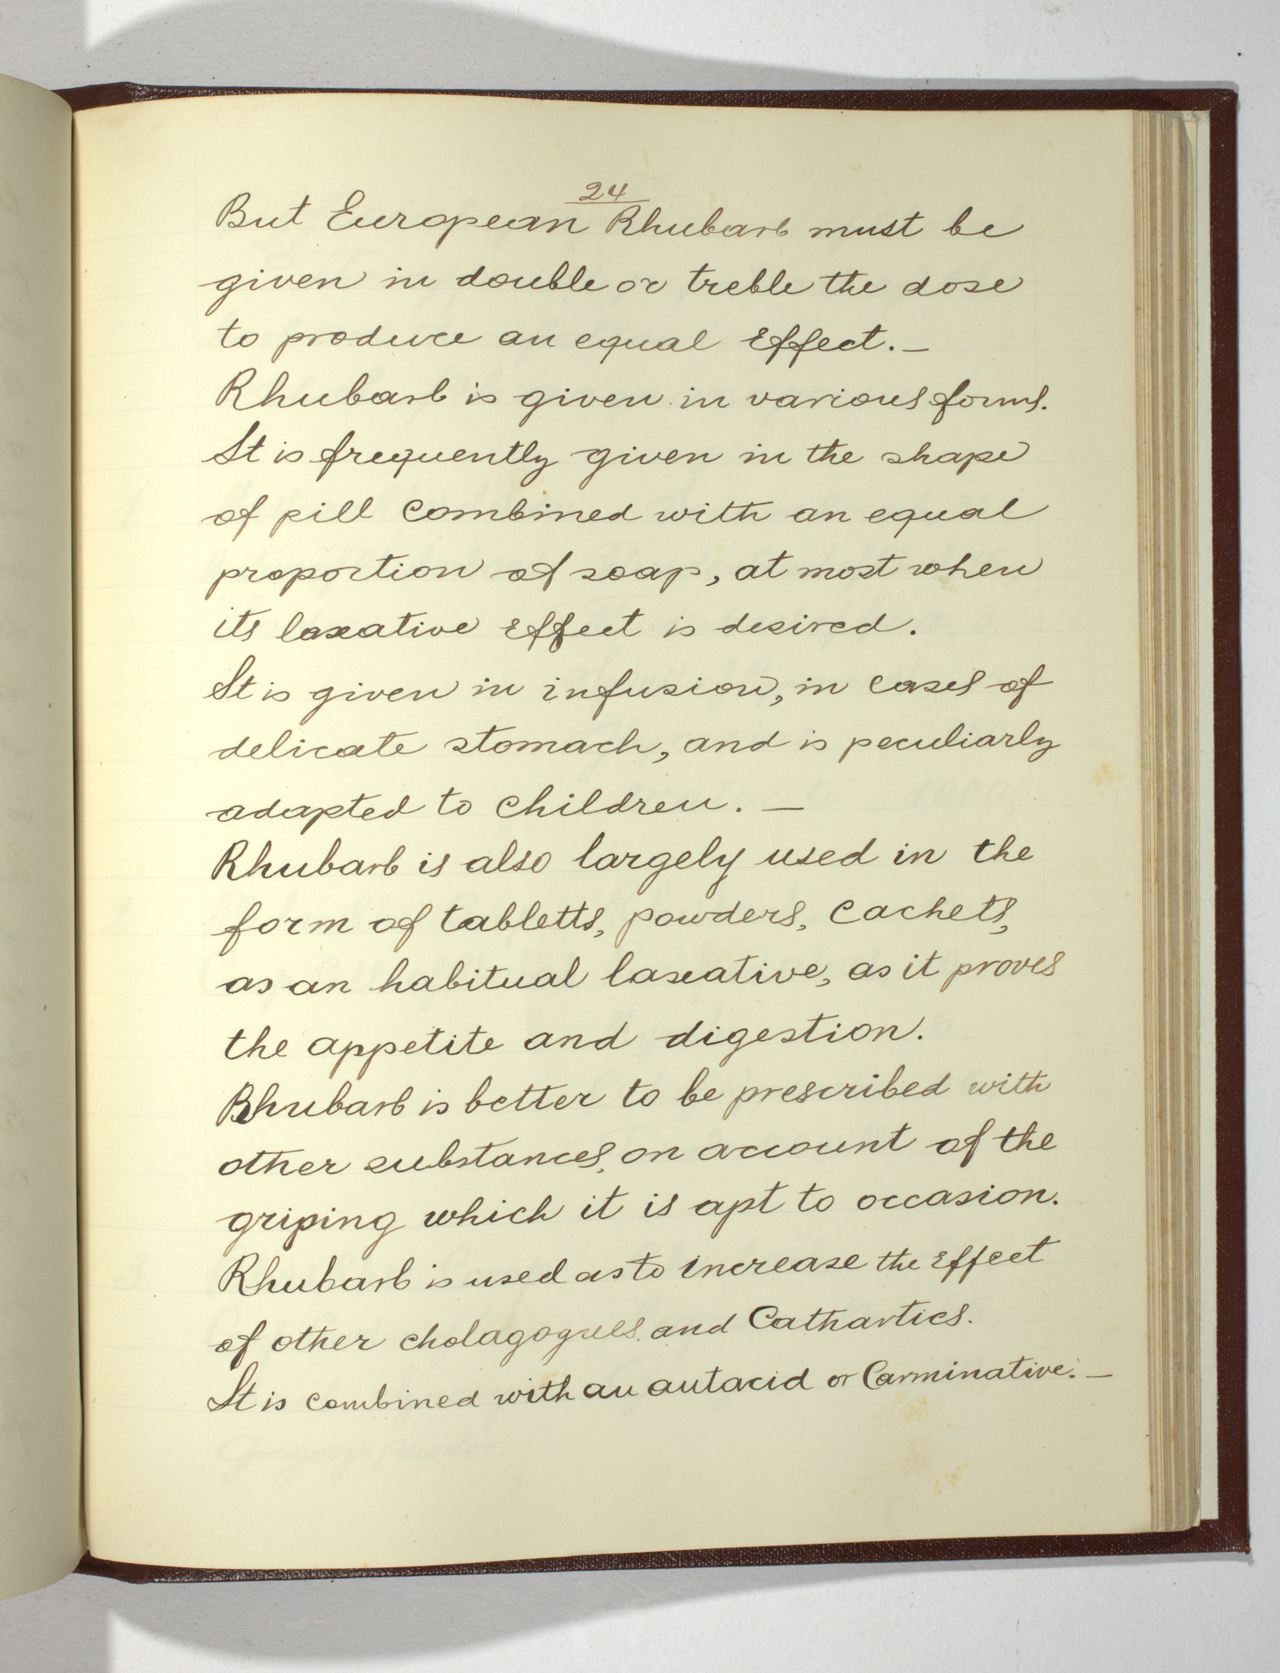 24
But European Rhubarb must be
given in double or treble the dose
to produce an equal Effect. —
Rhubarb is given in various forms.
It is frequently given in the shape
of pill combined with an equal
proportion of soap, at most when
its laxative Effect is desired.
It is given in infusion, in cases of
delicate stomach, and is peculiarly
adapted to children. —
Rhubarb is also largely used in the
form of tabletts, powders, cachets,
as an habitual laxative, as it proves
the appetite and digestion.
Rhubarb is better to be prescribed with
other substances, on account of the
griping which it is apt to occasion.
Rhubarb is used as to increase the Effect
of other cholagogues and Cathartics.
It is combined with an antacid or Carminative. —